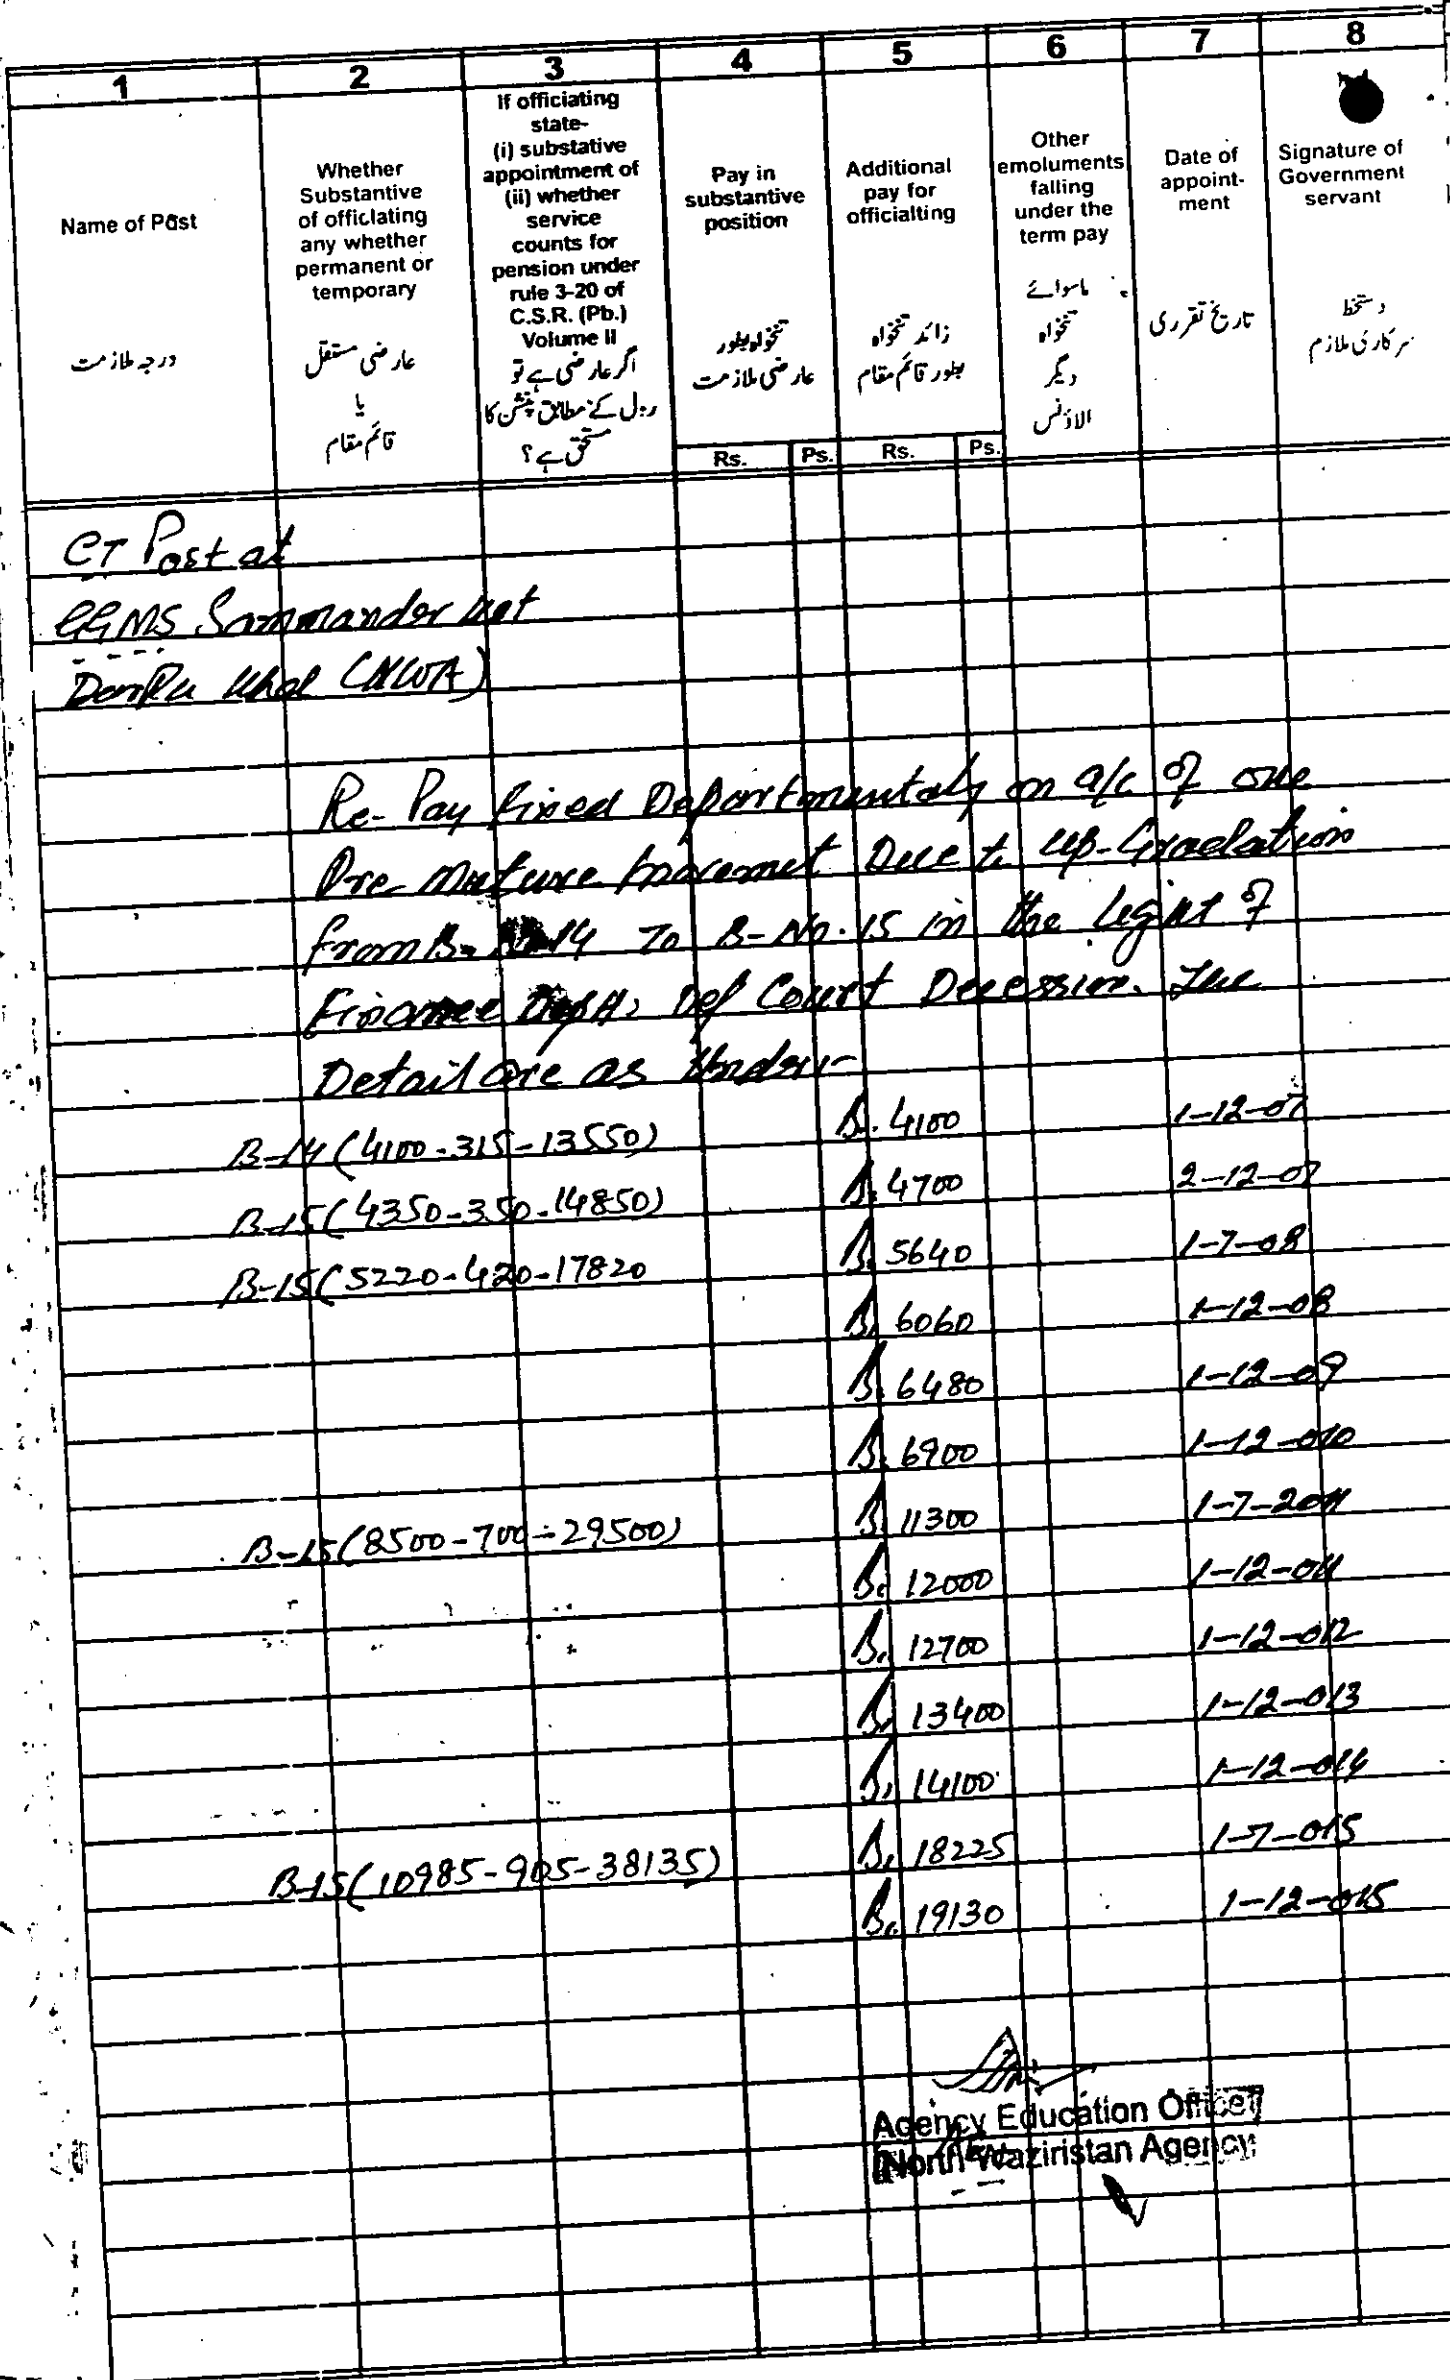 1 2 3 4 5 6 7 8
Name of Post
درجہ ملازمت
Whether
Substantive
of officlating
any whether
permanent or
temporary
عارضی مستقل
یا
قائم مقام
If officiating
state-
(i) substative
appointment of
(ii) whether
service
counts for
pension under
rule 3-20 of
C.S.R. (Pb.)
Volume II
اگر عارضی ہے تو
رول کے مطابق پنشن کا
مستحق ہے؟
Pay in
substantive
position
تنخواہ بطور
عارضی ملازمت
Rs. Ps.
Additional
pay for
officialting
زائد تنخواہ
بطور قائم مقام
Rs. Ps.
Other
emoluments
falling
under the
term pay
ماسوائے
تنخواہ
دیگر
الاؤنس
Date of
appoint-
ment
تاریخ تقرری
Signature of
Government
servant
دستخط
سرکاری ملازم
CT Post at
GGMS Sammander
(NWA)
Re-Pay fixed Departmentaly on a/c of one
Pre mature Increment Due to up-Gradation
from B- 14 To B-No.15 in the light of
Finance Deptt: Court Decession. The
Detail are as under:-
B-14 (4100-315-13550) 4100 1-12-07
B-15 (4350-350-14850) 4700 2-12-07
B-15 (5220-420-17820 5640 1-7-08
6060 1-12-08
6480 1-12-09
6900 1-12-010
B-15 (8500-700-29500) 11300 1-7-2011
12000 1-12-011
12700 1-12-012
13400 1-12-013
14100 1-12-014
B-15 (10985-905-38135) 18225 1-7-015
19130 1-12-015
Agency Education Officer
North Waziristan Agency